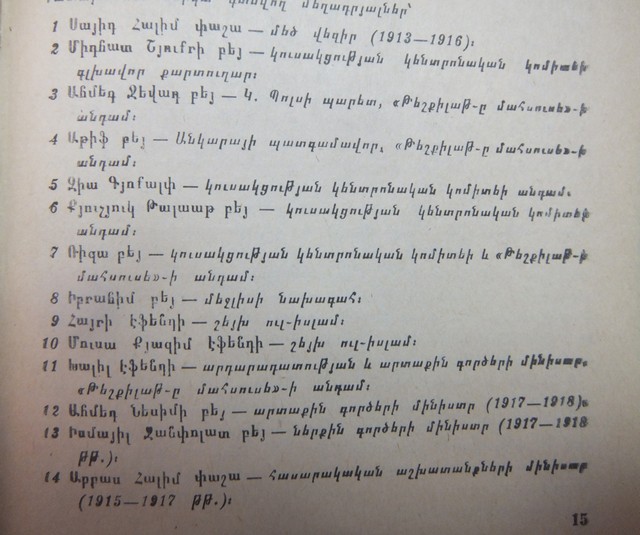 գտնվող մեղադրյալներ՝
1 Սայիդ Հալիմ փաշա — մեծ վեզիր (1913—1916)։
2 Միդհատ Շյուքրի բեյ — կուսակցության կենտրոնական կոմիտեի
գլխավոր քարտուղար։
3 Ահմեդ Ջեվադ բեյ — Կ. Պոլսի պարետ, «Թեշքիլաթ-ը մահսուսե»-ի
անդամ։
4 Աթիֆ բեյ — Անկարայի պատգամավոր, «Թեշքիլաթ-ը մահսուսե»-ի
անդամ։
5 Զիա Գյոքալփ — կուսակցության կենտրոնական կոմիտեի անդամ.
6 Քյուչյուկ Թալաաթ բեյ — կուսակցության կենտրոնական կոմիտեի
անդամ։
7 Ռիզա բեյ — կուսակցության կենտրոնական կոմիտեի և «Թեշքիլաթ-ի
մահսուսե»-ի անդամ։
8 Իբրահիմ բեյ — մեջլիսի նախագահ։
9 Հայրի էֆենդի — շեյխ ուլ-իսլամ։
10 Մուսա Քյազիմ էֆենդի — շեյխ ուլ-իսլամ։
11 Խալիլ էֆենդի — արդարադատության և արտաքին գործերի մինիստր,
«Թեշքիլաթ-ը մահսուսե»-ի անդամ։
12 Ահմեդ Նեսիմի բեյ — արտաքին գործերի մինիստր (1917—1918)։
13 Իսմայիլ Ջանփոլատ բեյ — ներքին գործերի մինիստր (1917—1918
թթ.)։
14 Աբբաս Հալիմ փաշա — հասարակական աշխատանքների մինիստր
(1915—1917 թթ.)։
15